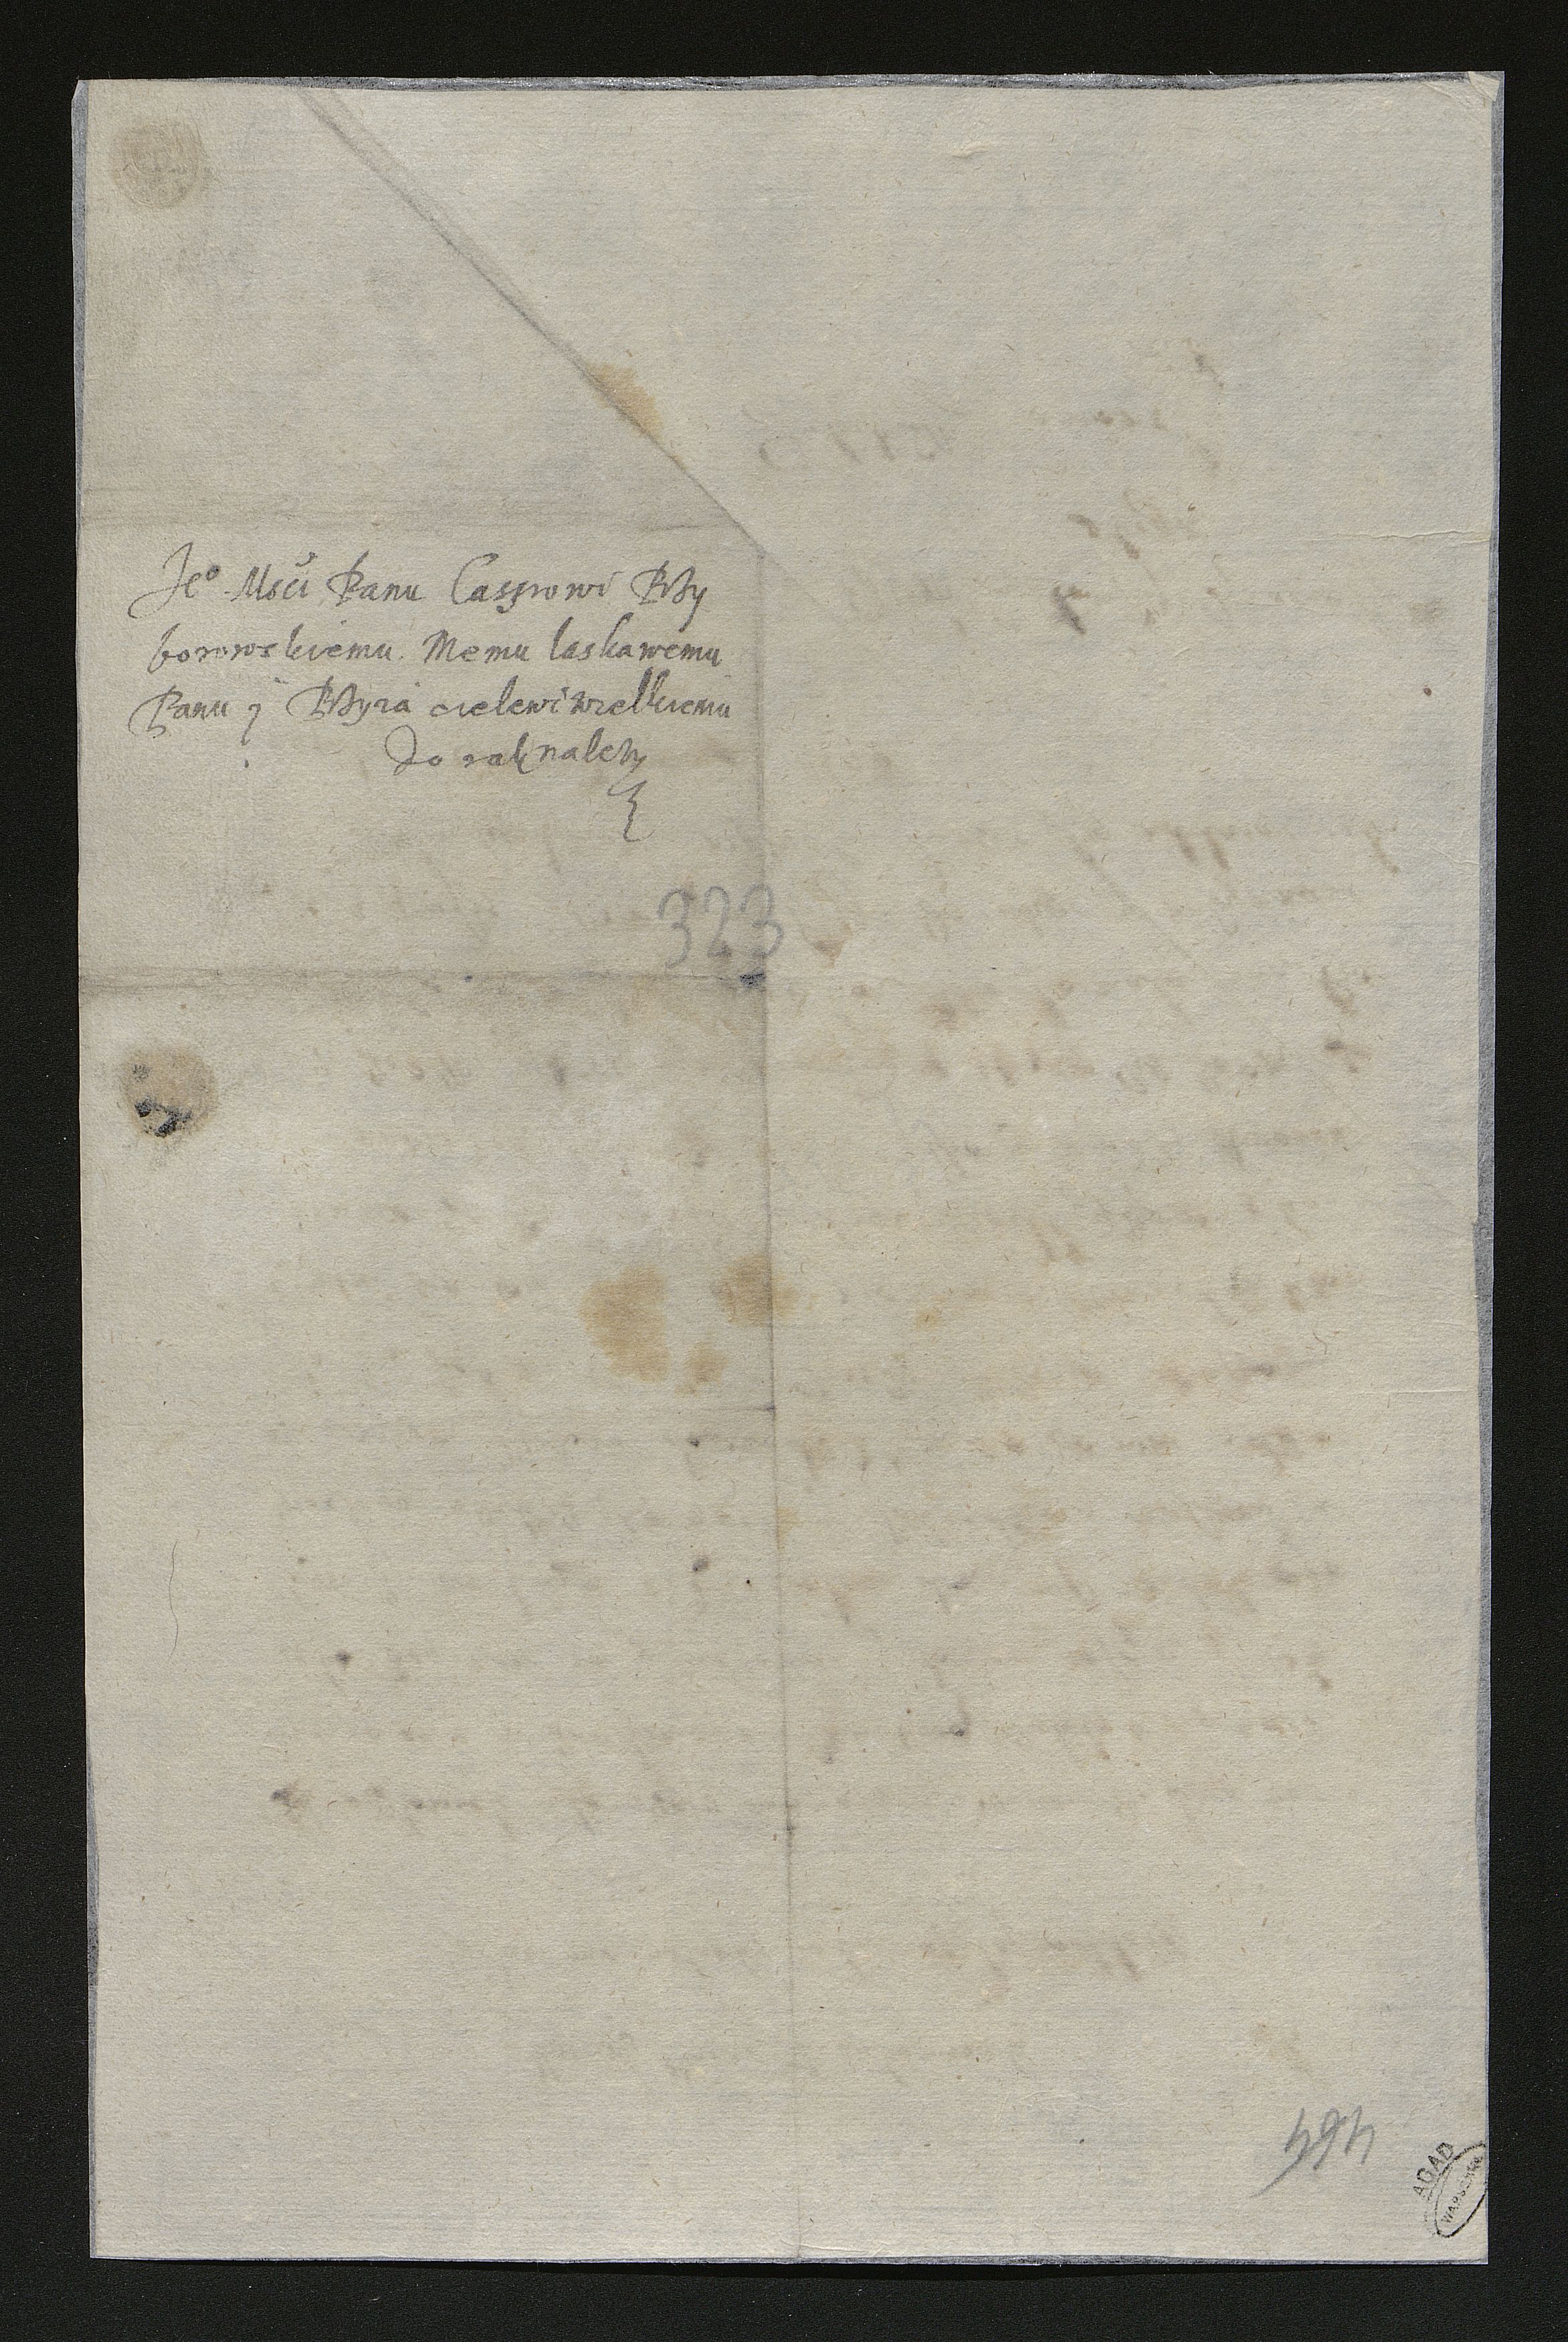 Jeº Mści Panu Casprowi Przy
borowskiemu. Memu laskawemu
Panu j Przyia cielewi wielkiemu
do rak nalezy
323
464
AGAD
WARSZAWA